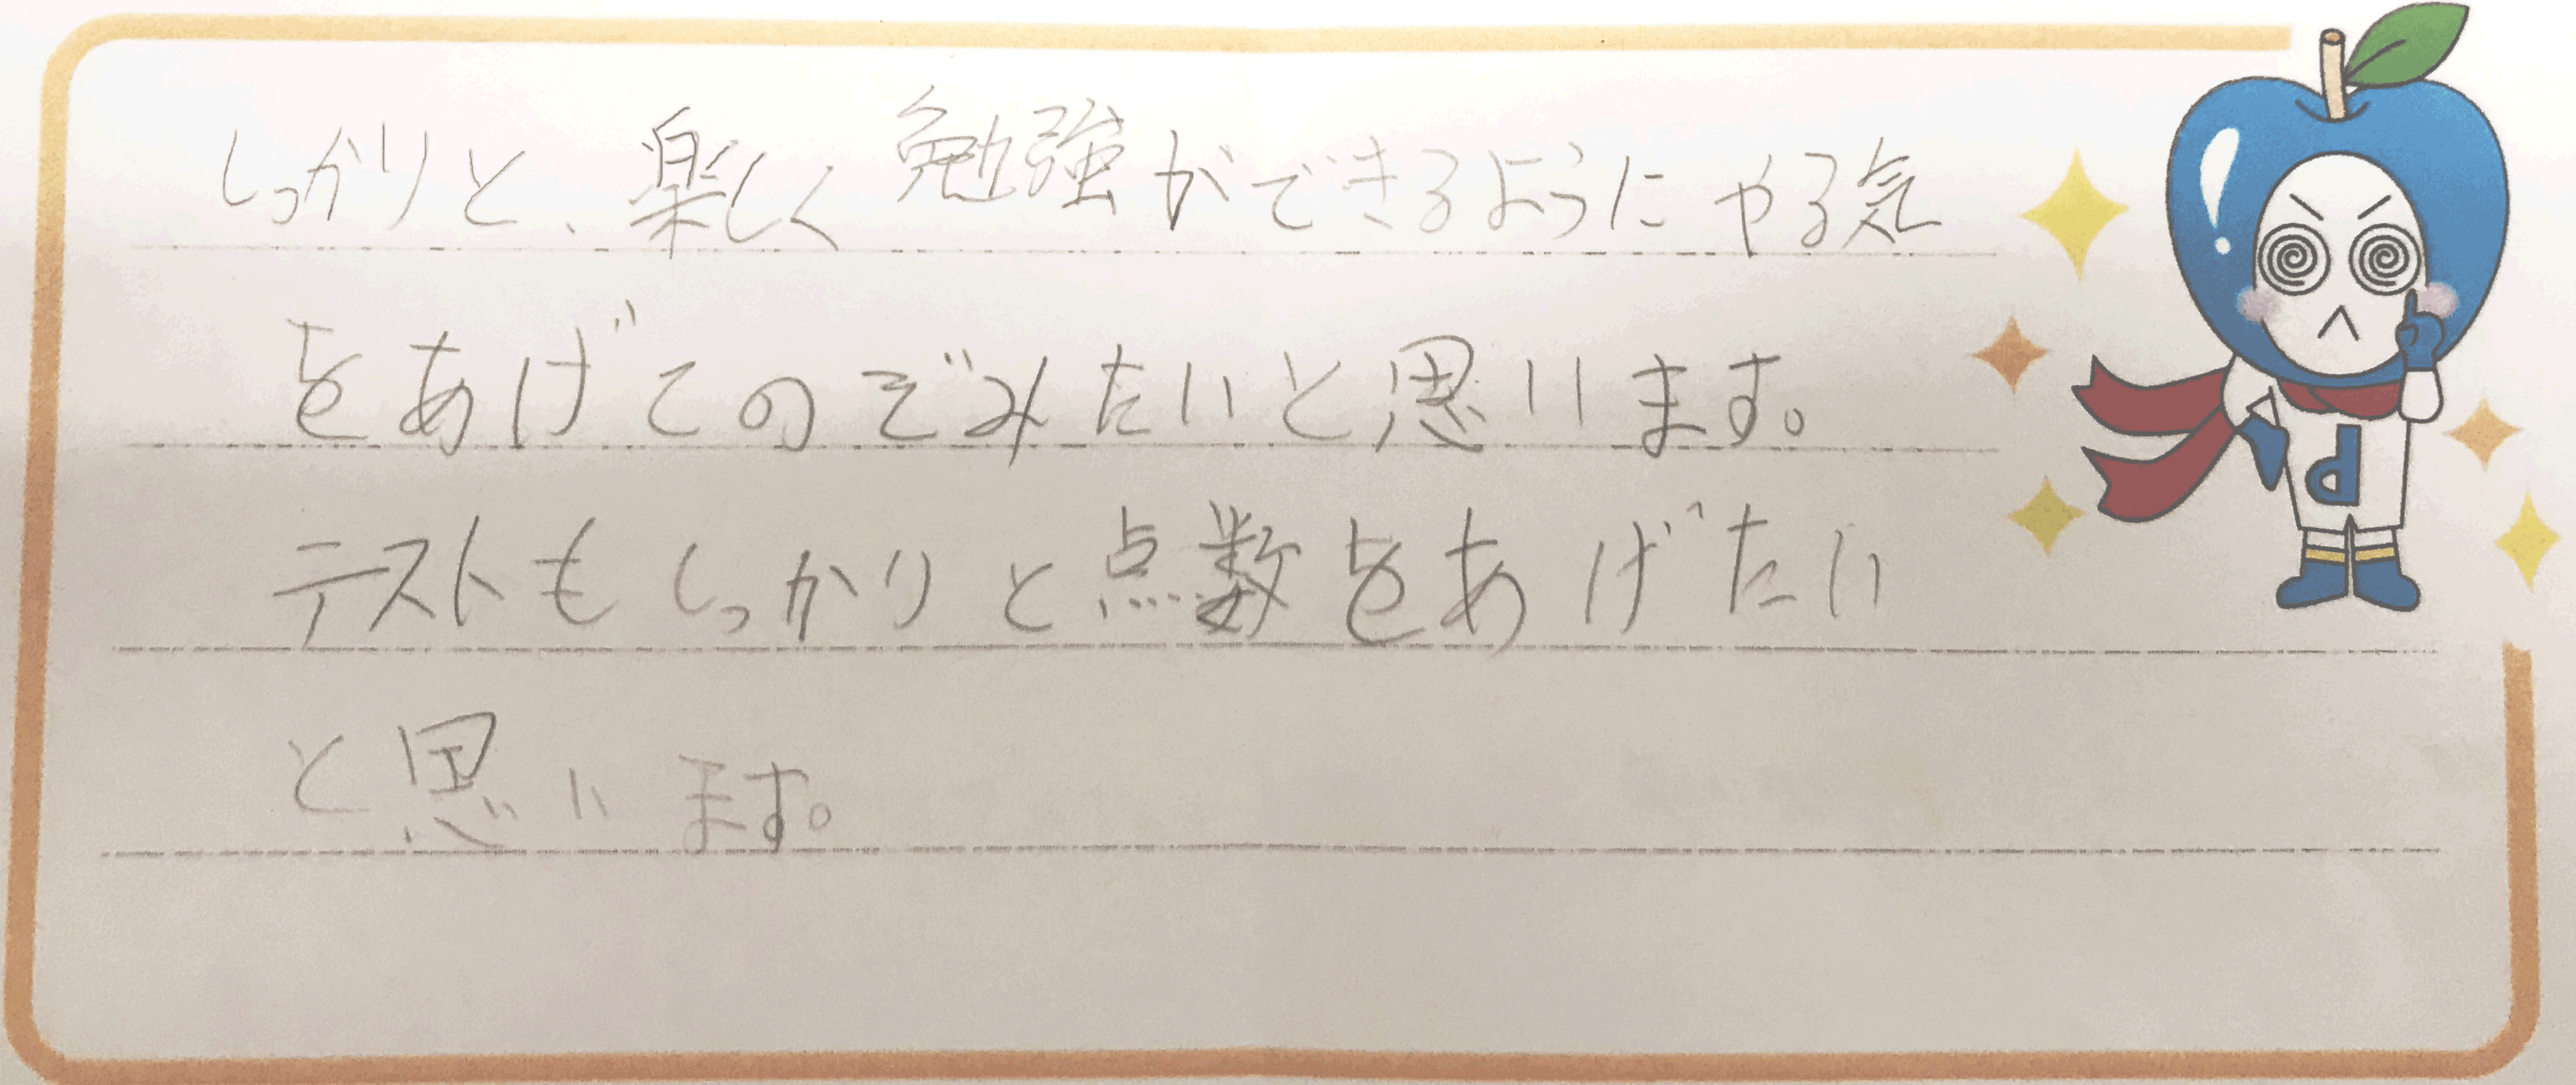 しっかりと、楽しく勉強ができるようにやる気
をあげてのぞみたいと思います。
テストもしっかりと点数をあげたい
と思います。
d